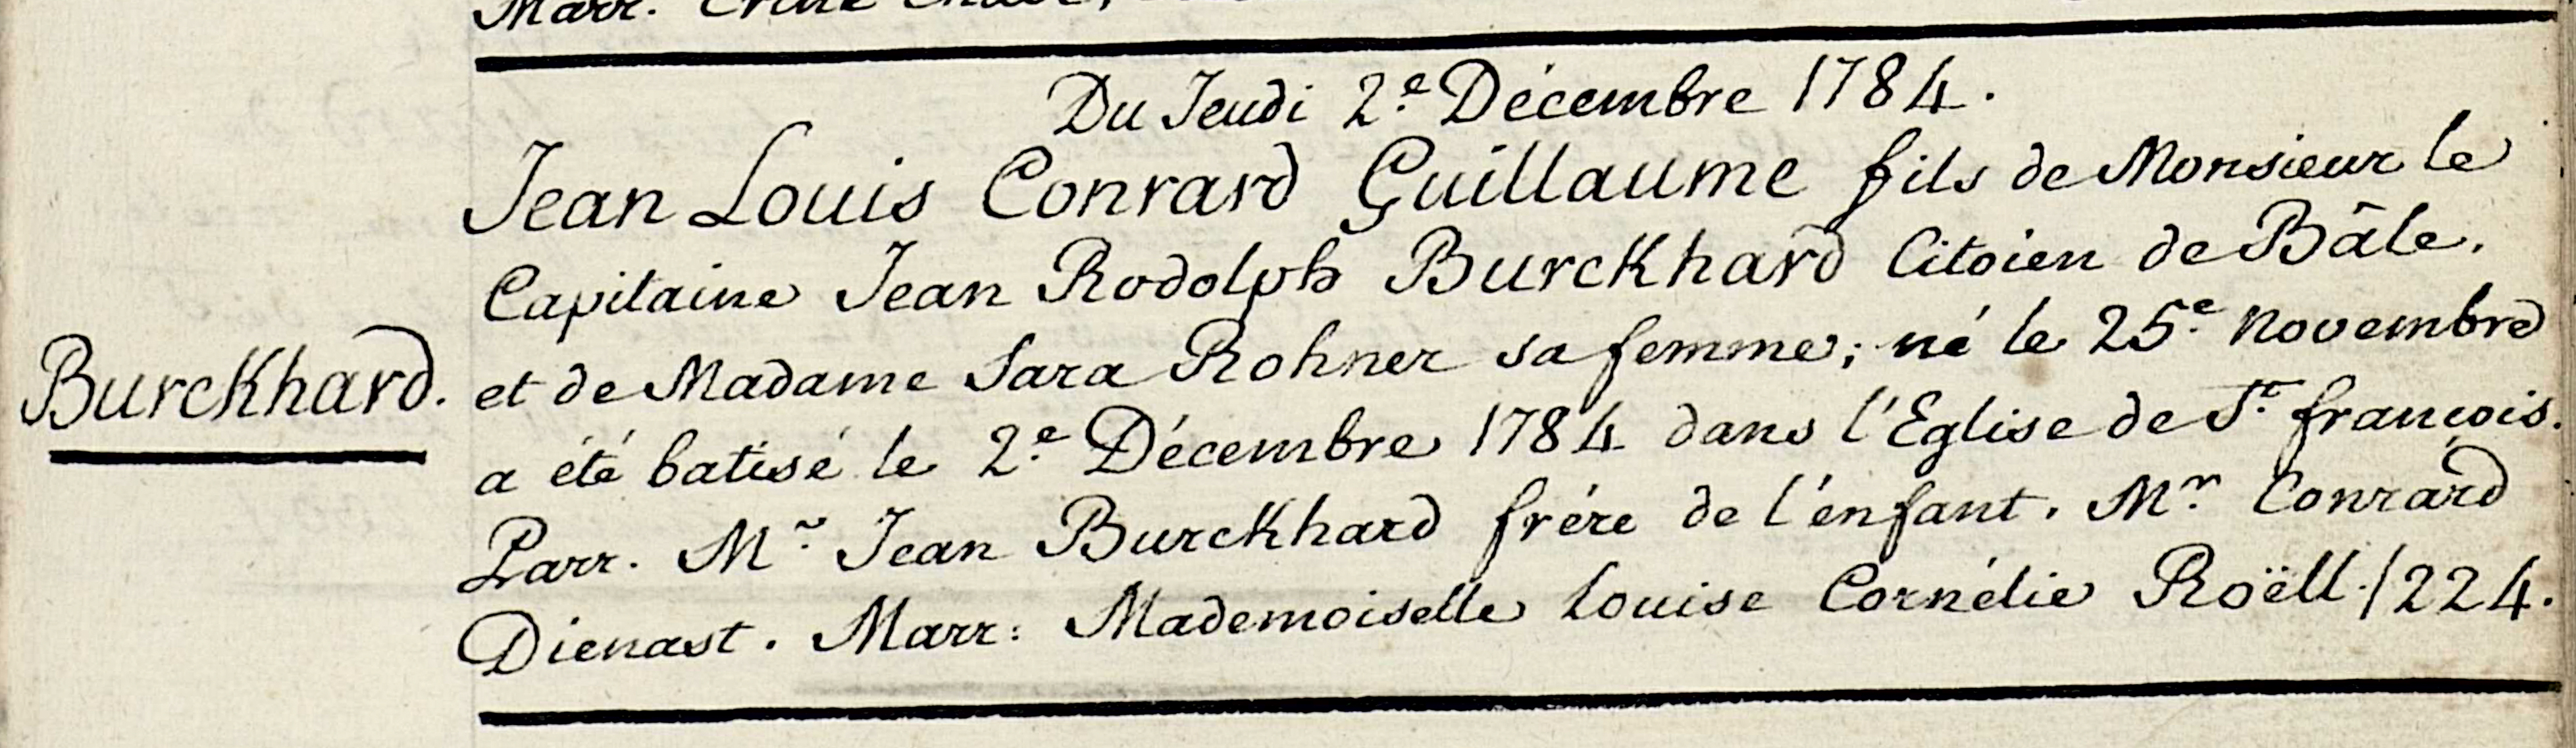 Marr.
Du Jeudi 2.e Décembre 1784.
Jean Louis Conrard Guillaume fils de Monsieur le
Capitaine Jean Rodolph Burckhard Citoien de Bâle.
Burckhard.
et de Madame Sara Rohner sa femme; né le 25.e Novembre
a été batisé le 2.e Décembre 1784 dans l'Eglise de St. françois.
Parr. Mr. Jean Burckhard frére de l'énfant. Mr. Conrard
Dienast. Marr: Mademoiselle Louise Cornélie Roëll./224.